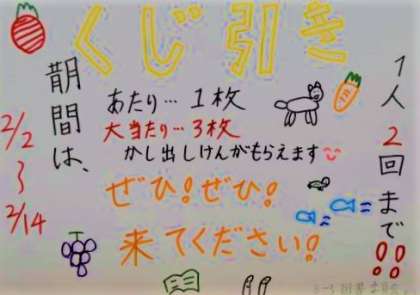 くじ引き
1人2回まで!!
あたり…1枚
大当たり…3枚
かし出しけんがもらえます
期間は、
2/2
〜
2/14
ぜひ!ぜひ!
来てください!